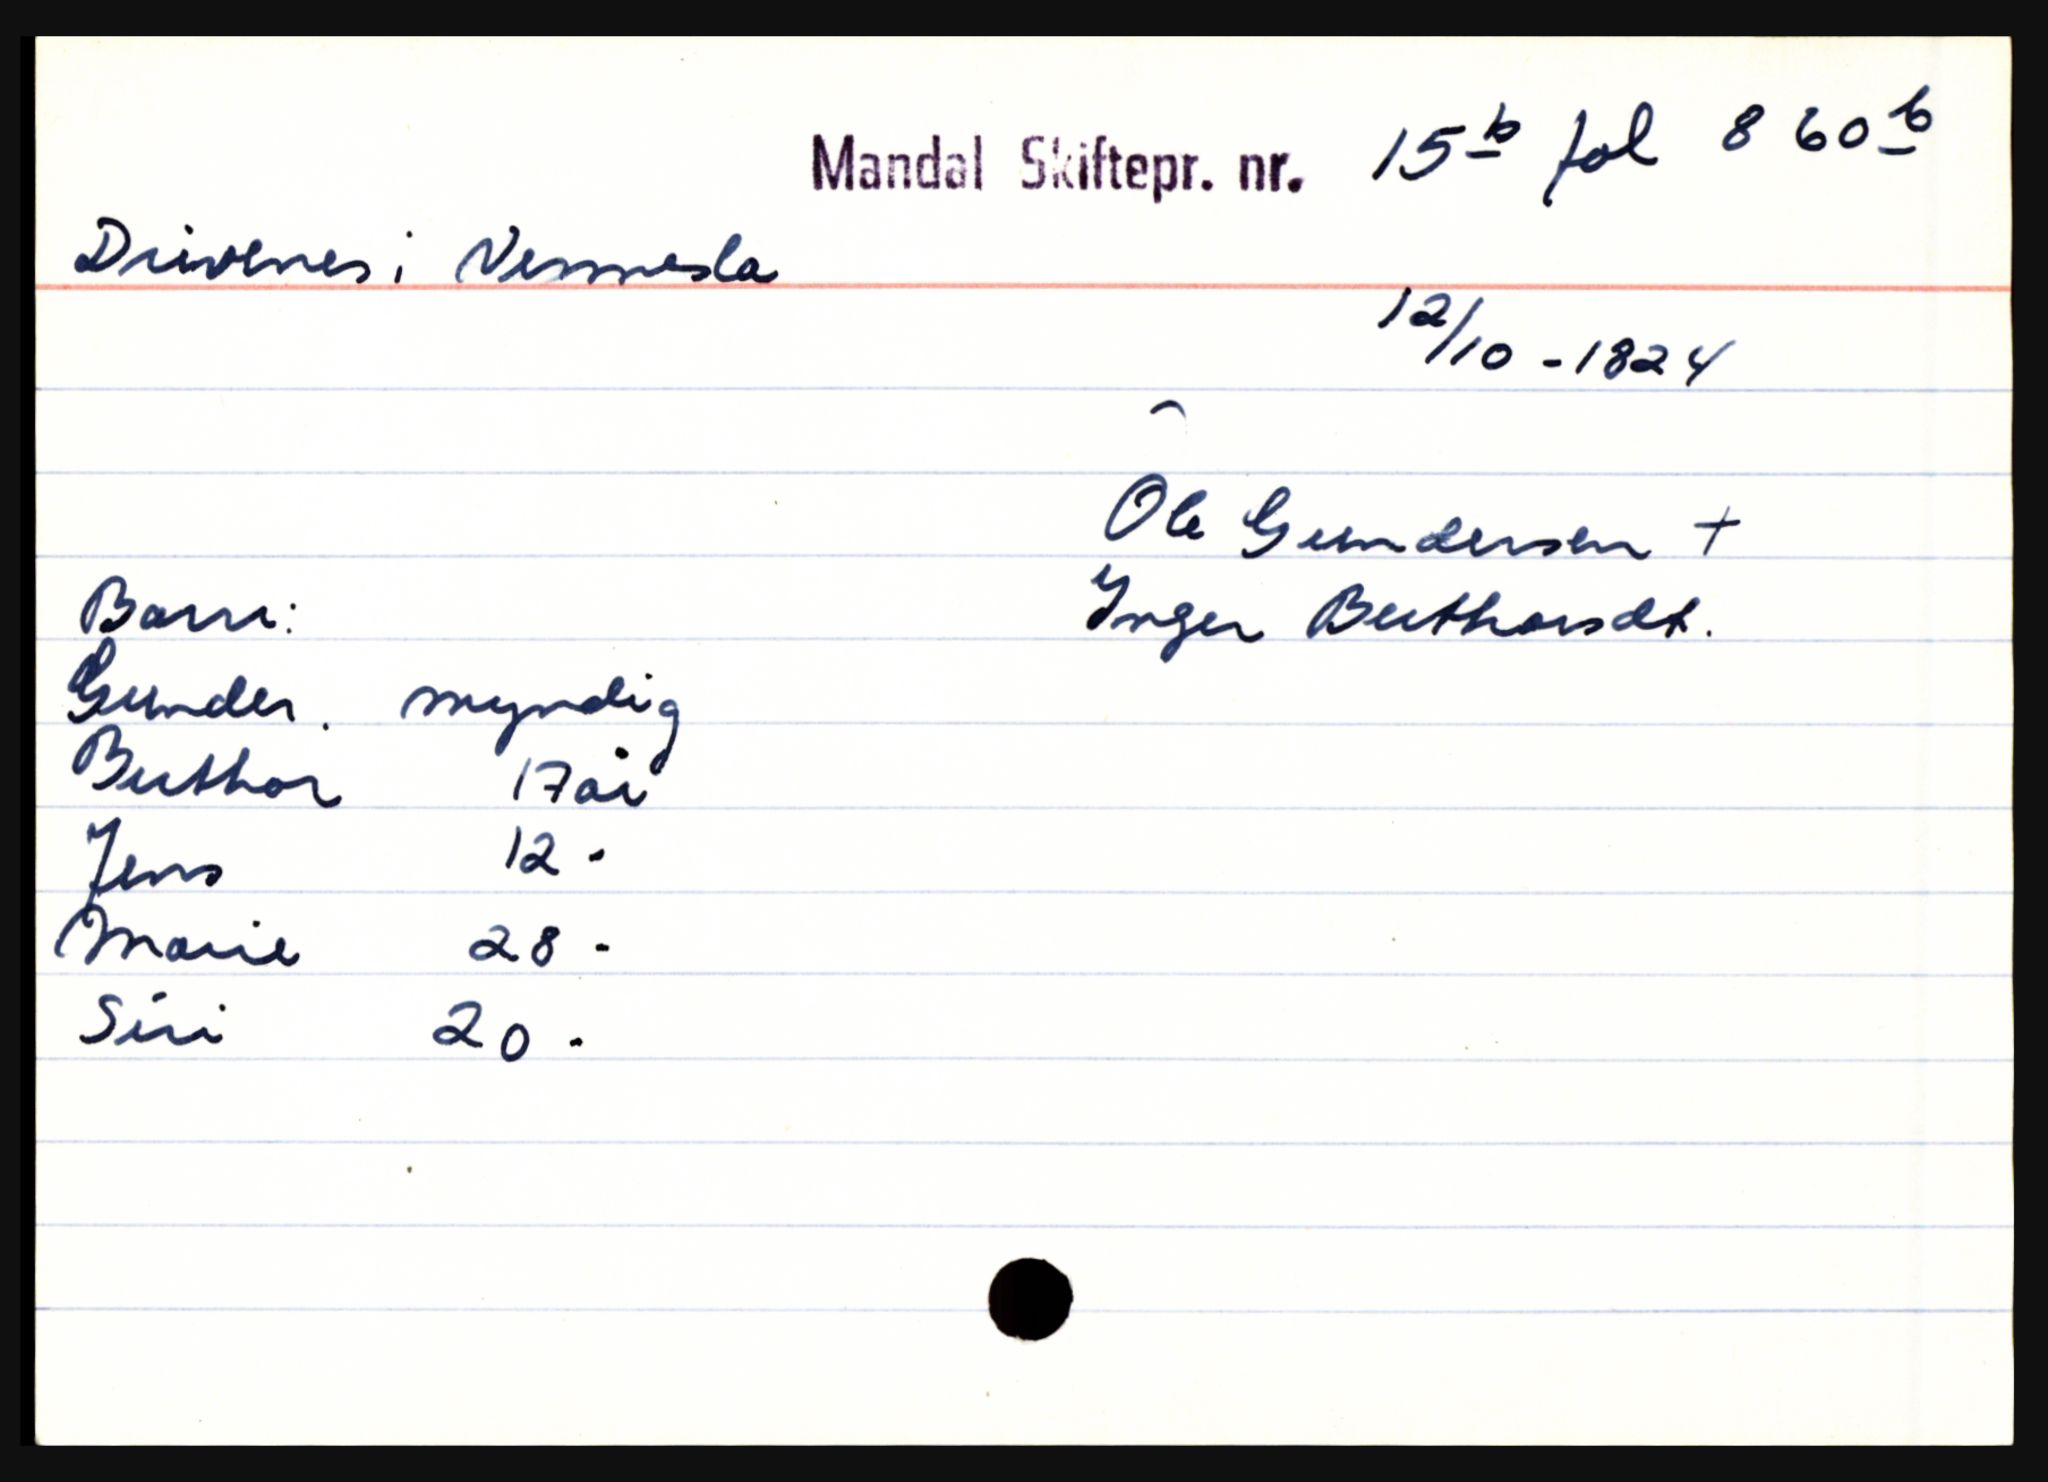 Mandal Skiftepr. nr. 15b fol 860b
Drivenes i Vennesla
12/10 - 1824
Ole Gundersen +
Inger Berthorsdt.
Barn:
Gunder. myndig
Berthor 17 år
Jens 12 -
Marie 28 -
Siri 20 -